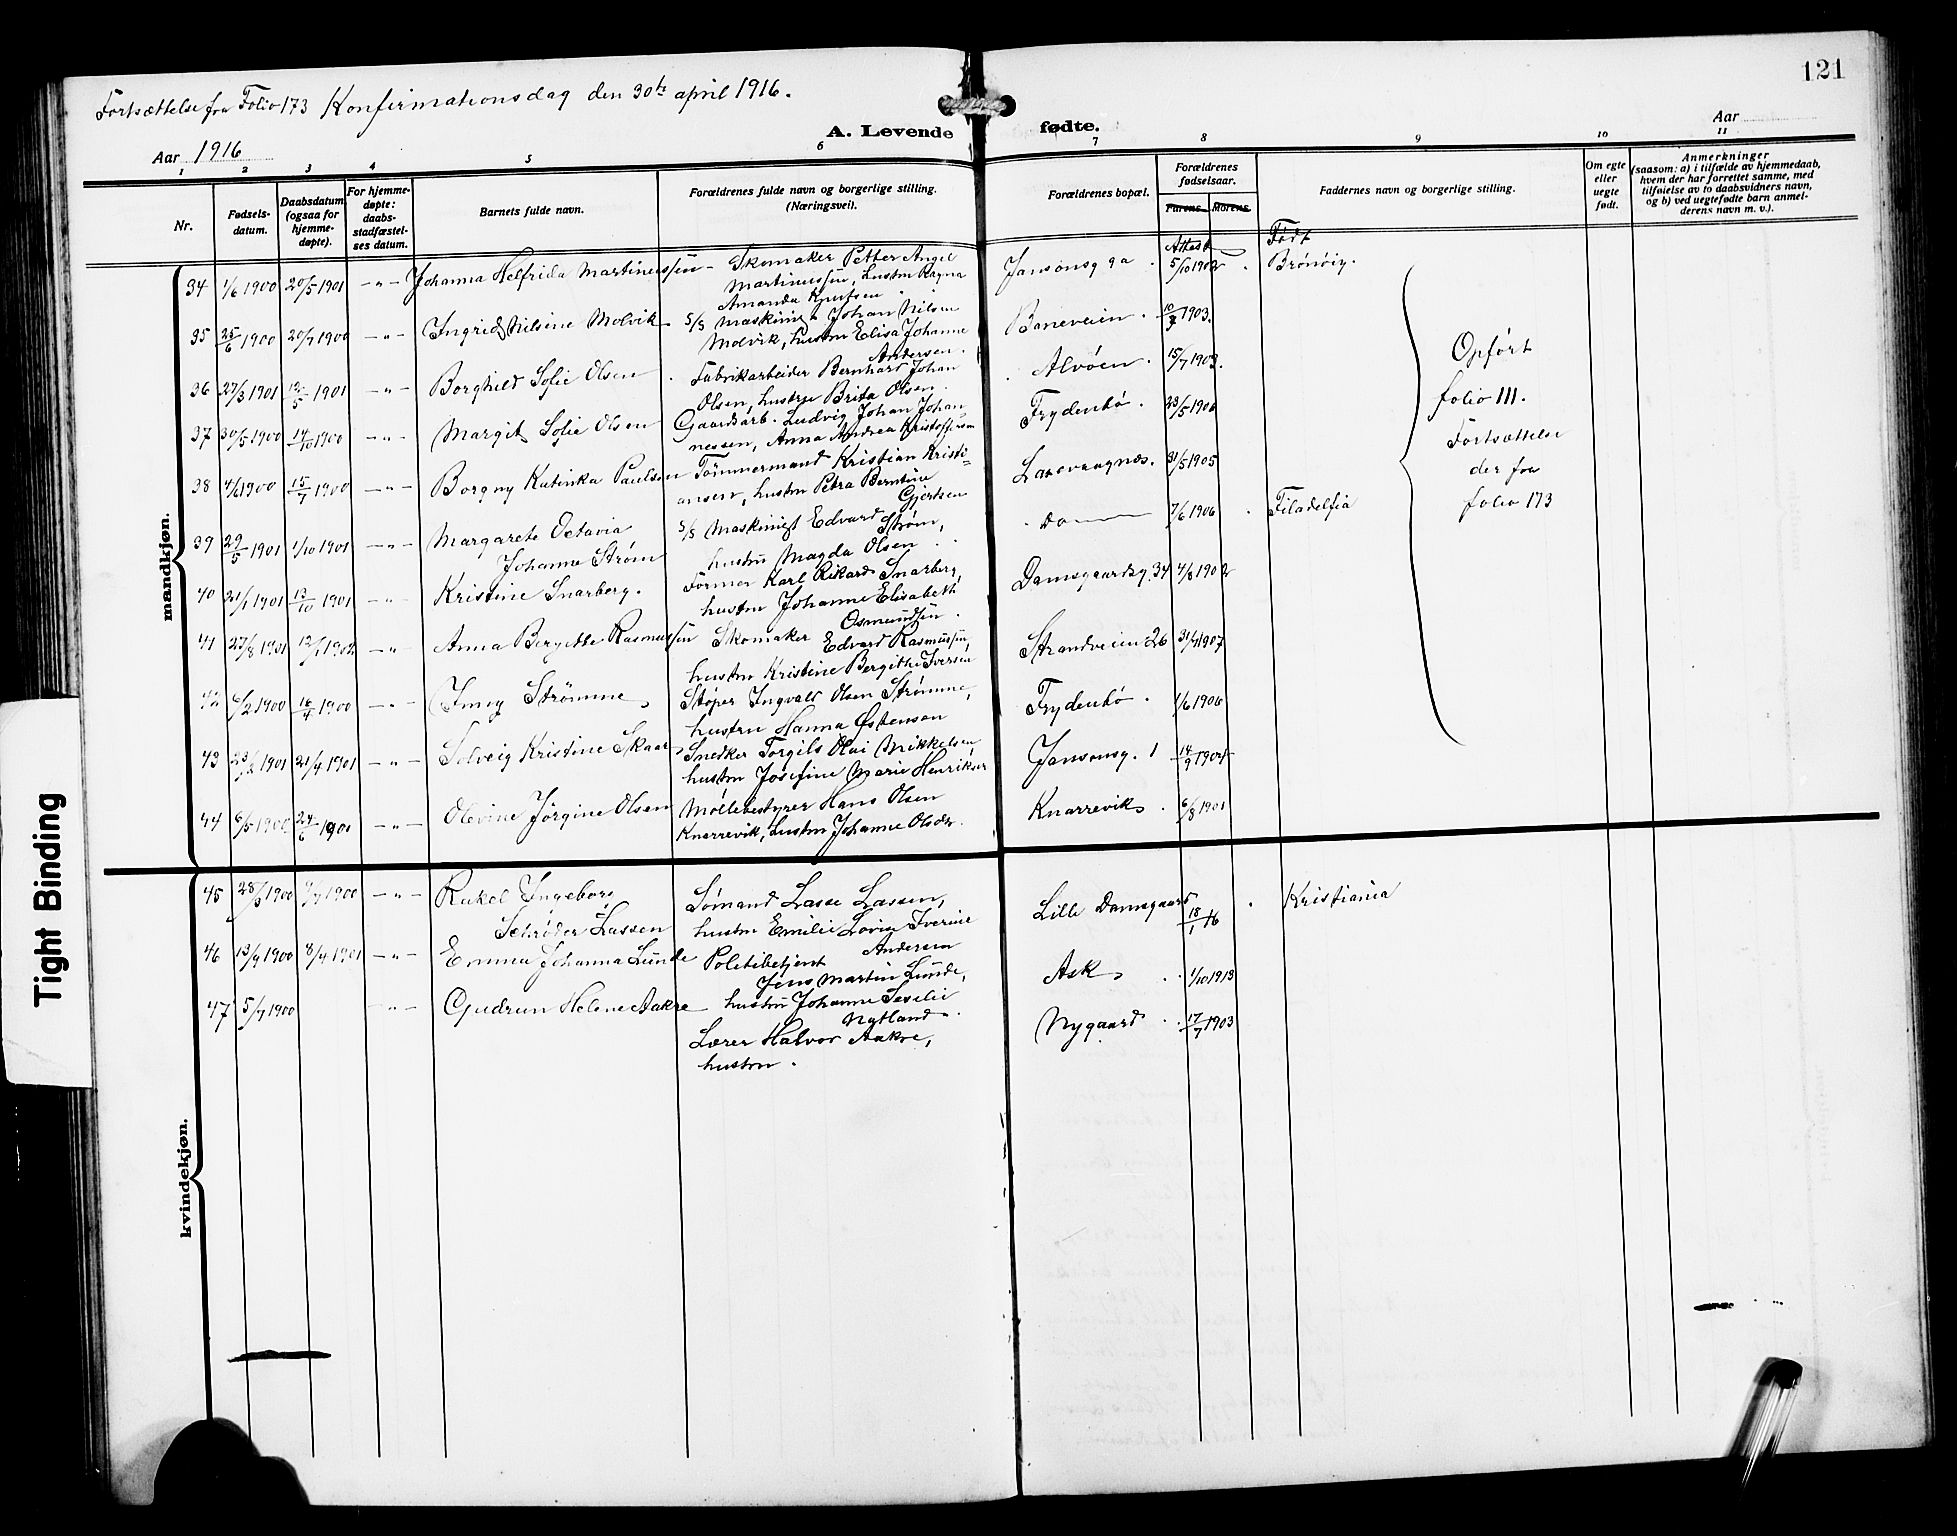 121
Fortsættelse fra Folio 173 Konfirmationsdag den 30te april 1916.
A. Levende fødte.
Aar 1916
Aar
1 2 3 4 5 6 7 8 9 10 11
Nr.
Fødsels-
datum.
Daabsdatum
(ogsaa for
hjemme-
døpte).
For hjemme-
døpte:
daabs-
stadfæstel-
ses datum.
Barnets fulde navn.
Forældrenes fulde navn og borgerlige stilling.
(Næringsvei).
Forældrenes bopæl.
Forældrenes
fødselsaar.
Farens. Morens.
Faddernes navn og borgerlige stilling.
Om egte
eller
uegte
født.
Anmerkninger
(saasom: a) i tilfælde av hjemmedaab,
hvem der har forrettet samme, med
tilføielse av to daabsvidners navn,
og b) ved uegtefødte barn anmel-
derens navn m. v.).
mandkjøn.
34 1/6 1900 20/5 1901 -"- Johanna Helfrida Martinussen - Skomaker Petter Angel
Martinussen, hustru Ragna
Amanda Knutsen
Jansonsg 9a . Attest 5/10 1902 . Født
Brönöig.
35 25/6 1900 20/7 1900 -"- Ingrid Nilsine Molvik S/S Maskinist Johan Nilsen
Molvik, hustru Elisa Johanne
Andersen.
Baneveien . 10/3 1903.
36 27/3 1901 12/5 1901 -"- Borghild Sofie Olsen . Fabrikarbeider Bernhard Johan
Olsen, hustru Brita Olsen.
Alvöen . 15/7 1903.
37 30/5 1900 14/10 1900 -"- Margit Sofie Olsen Gaardsarb. Ludvig Johan Johan-
nessen, Anna Andrea Kristoffersen
Frydenbö . 23/5 1906
38 4/6 1900 15/7 1900 -"- Borgny Katinka Paulsen Tömmermand Kristian Kristi-
ansen, hustru Petra Berntine
Gjertsen
Laxevaagnæs. 31/5 1905
39 29/5 1901 1/10 1901 -"- Margarete Octavia
Johanne Ström
S/S Maskinist Edvard
Ström,
hustru Magda Olsen .
Do 7/6 1906 . Filadelfia
40 21/1 1901 13/10 1901 -"- Kristine Snarberg. Former Karl Rikard Snarberg,
hustru Johanne Elisabeth
Osmundsen .
Damsgaardsg. 34 4/8 1902
41 27/8 1901 12/1 1902 -"- Anna Bergitte Rasmussen Skomaker
Edvard Rasmussen,
hustru Kristine Bergithe Iversen
Strandveien 26 31/7 1907
42 6/2 1900 16/4 1900 -"- Imoy Strömme, Støper Ingvald Olsen Strömme,
hustru Hanna Østensen
Frydenbö . 1/6 1906
43 23/2 1901 21/4 1901 -"- Solveig Kristine Skaar Snedker Torgils Olai Mikkelsen
hustru Josefine Marie Henriksen
Jansonsg. 1 14/9 1904
44 6/5 1900 24/6 1900 -"- Olevine Jörgine Olsen Möllebestyrer Hans Olsen
Knarrevik, hustru Johanne Olsdtr.
Knarrevik . 6/8 1901
Opfört
folio 111.
Fortsættelse
der fra
folio 173
kvindekjøn.
45 28/3 1900 7/7 1900 -"- Rakel Ingeborg
Schröder Lassen
Sömand Lasse Lassen,
hustru Emilie Lovise Iverine
Andersen
Lille Damsgaard 18/1 16 . Kristiania
46 13/9 1900 8/4 1901 -"- Emma Johanna Lunde Politibetjent
Jens Martin Lunde,
hustru Johanne Sesilie
Nytland.
Ask 1/10 1913
47 5/7 1900 -"- Gudrun Helene Aakre Lærer Halvor Aakre,
hustru .
Nygaard . 17/7 1903
Tight Binding